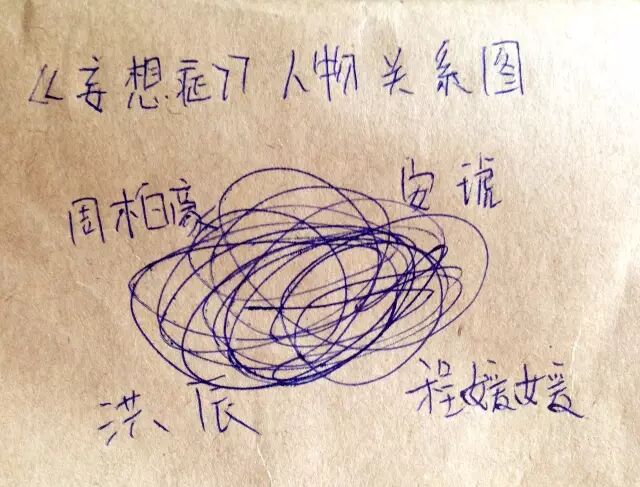 《妄想症》人物关系图
周柏豪
安琥
洪辰
程媛媛